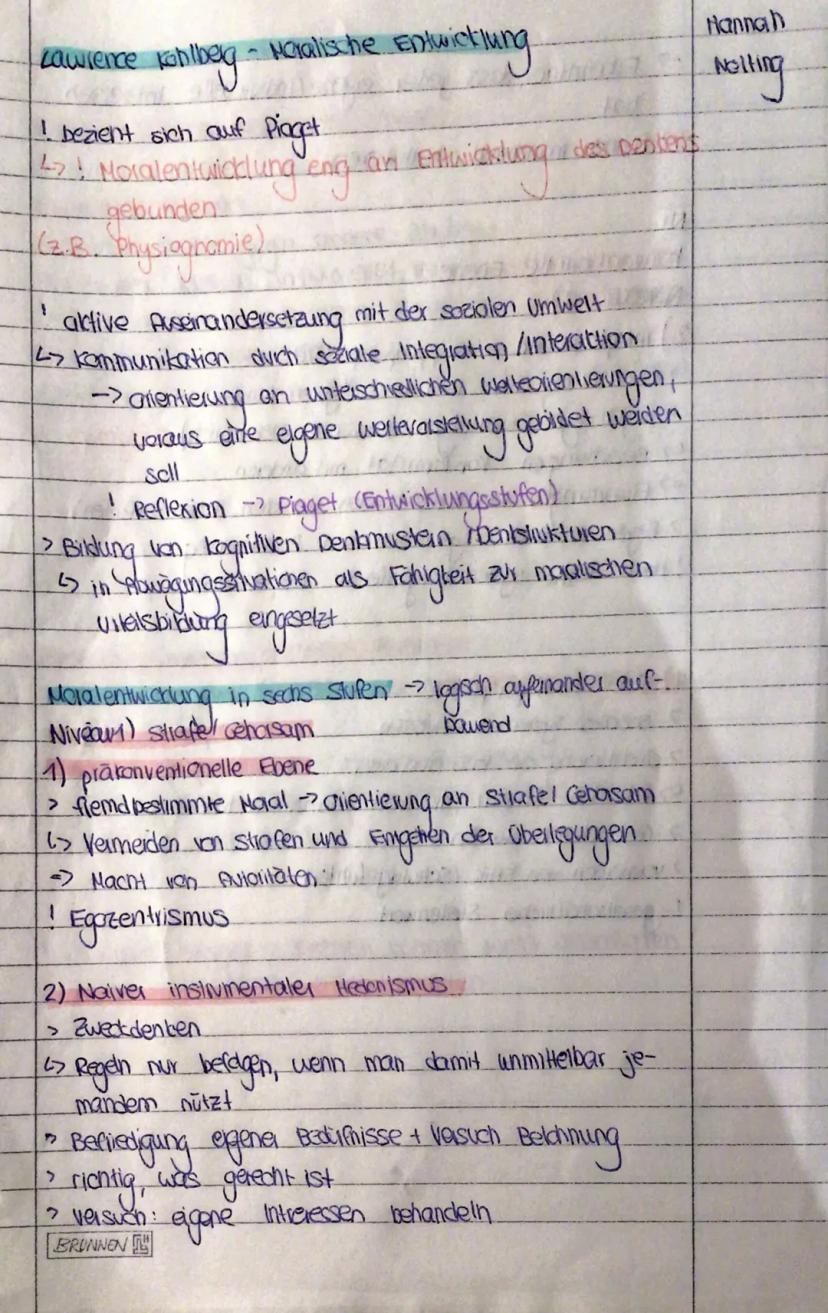 Hannah
Nolting
Lawrence Kohlberg - Moralische Entwicklung
! bezieht sich auf Piaget
↳ ! Moralentwicklung eng an Entwicklung des Denkens
gebunden
(z.B. Physiognomie)
! aktive Auseinandersetzung mit der sozialen Umwelt
↳ Kommunikation durch soziale Integration/Interaktion
-> Orientierung an unterschiedlichen Werteorientierungen,
woraus eine eigene Wertevorstellung gebildet werden
soll
! Reflexion -> Piaget (Entwicklungsstufen)
> Bildung von kognitiven Denkmustern/Denkstrukturen
↳ in Abwägungssituationen als Fähigkeit zur moralischen
Urteilsbildung eingesetzt
Moralentwicklung in sechs Stufen -> logisch aufeinander auf-
bauend
Niveau 1) Strafe/Gehorsam
1) präkonventionelle Ebene
> fremdbestimmte Moral -> Orientierung an Strafe/Gehorsam
↳ Vermeiden von Strafen und Eingehen der Überlegungen
=> Macht von Autoritäten
! Egozentrismus
2) Naiver instrumentaler Hedonismus
> Zweckdenken
↳ Regeln nur befolgen, wenn man damit unmittelbar je-
mandem nützt
> Befriedigung eigener Bedürfnisse + Versuch Belohnung
> richtig, was gerecht ist
> Versuch: eigene Interessen behandeln
BRUNNEN